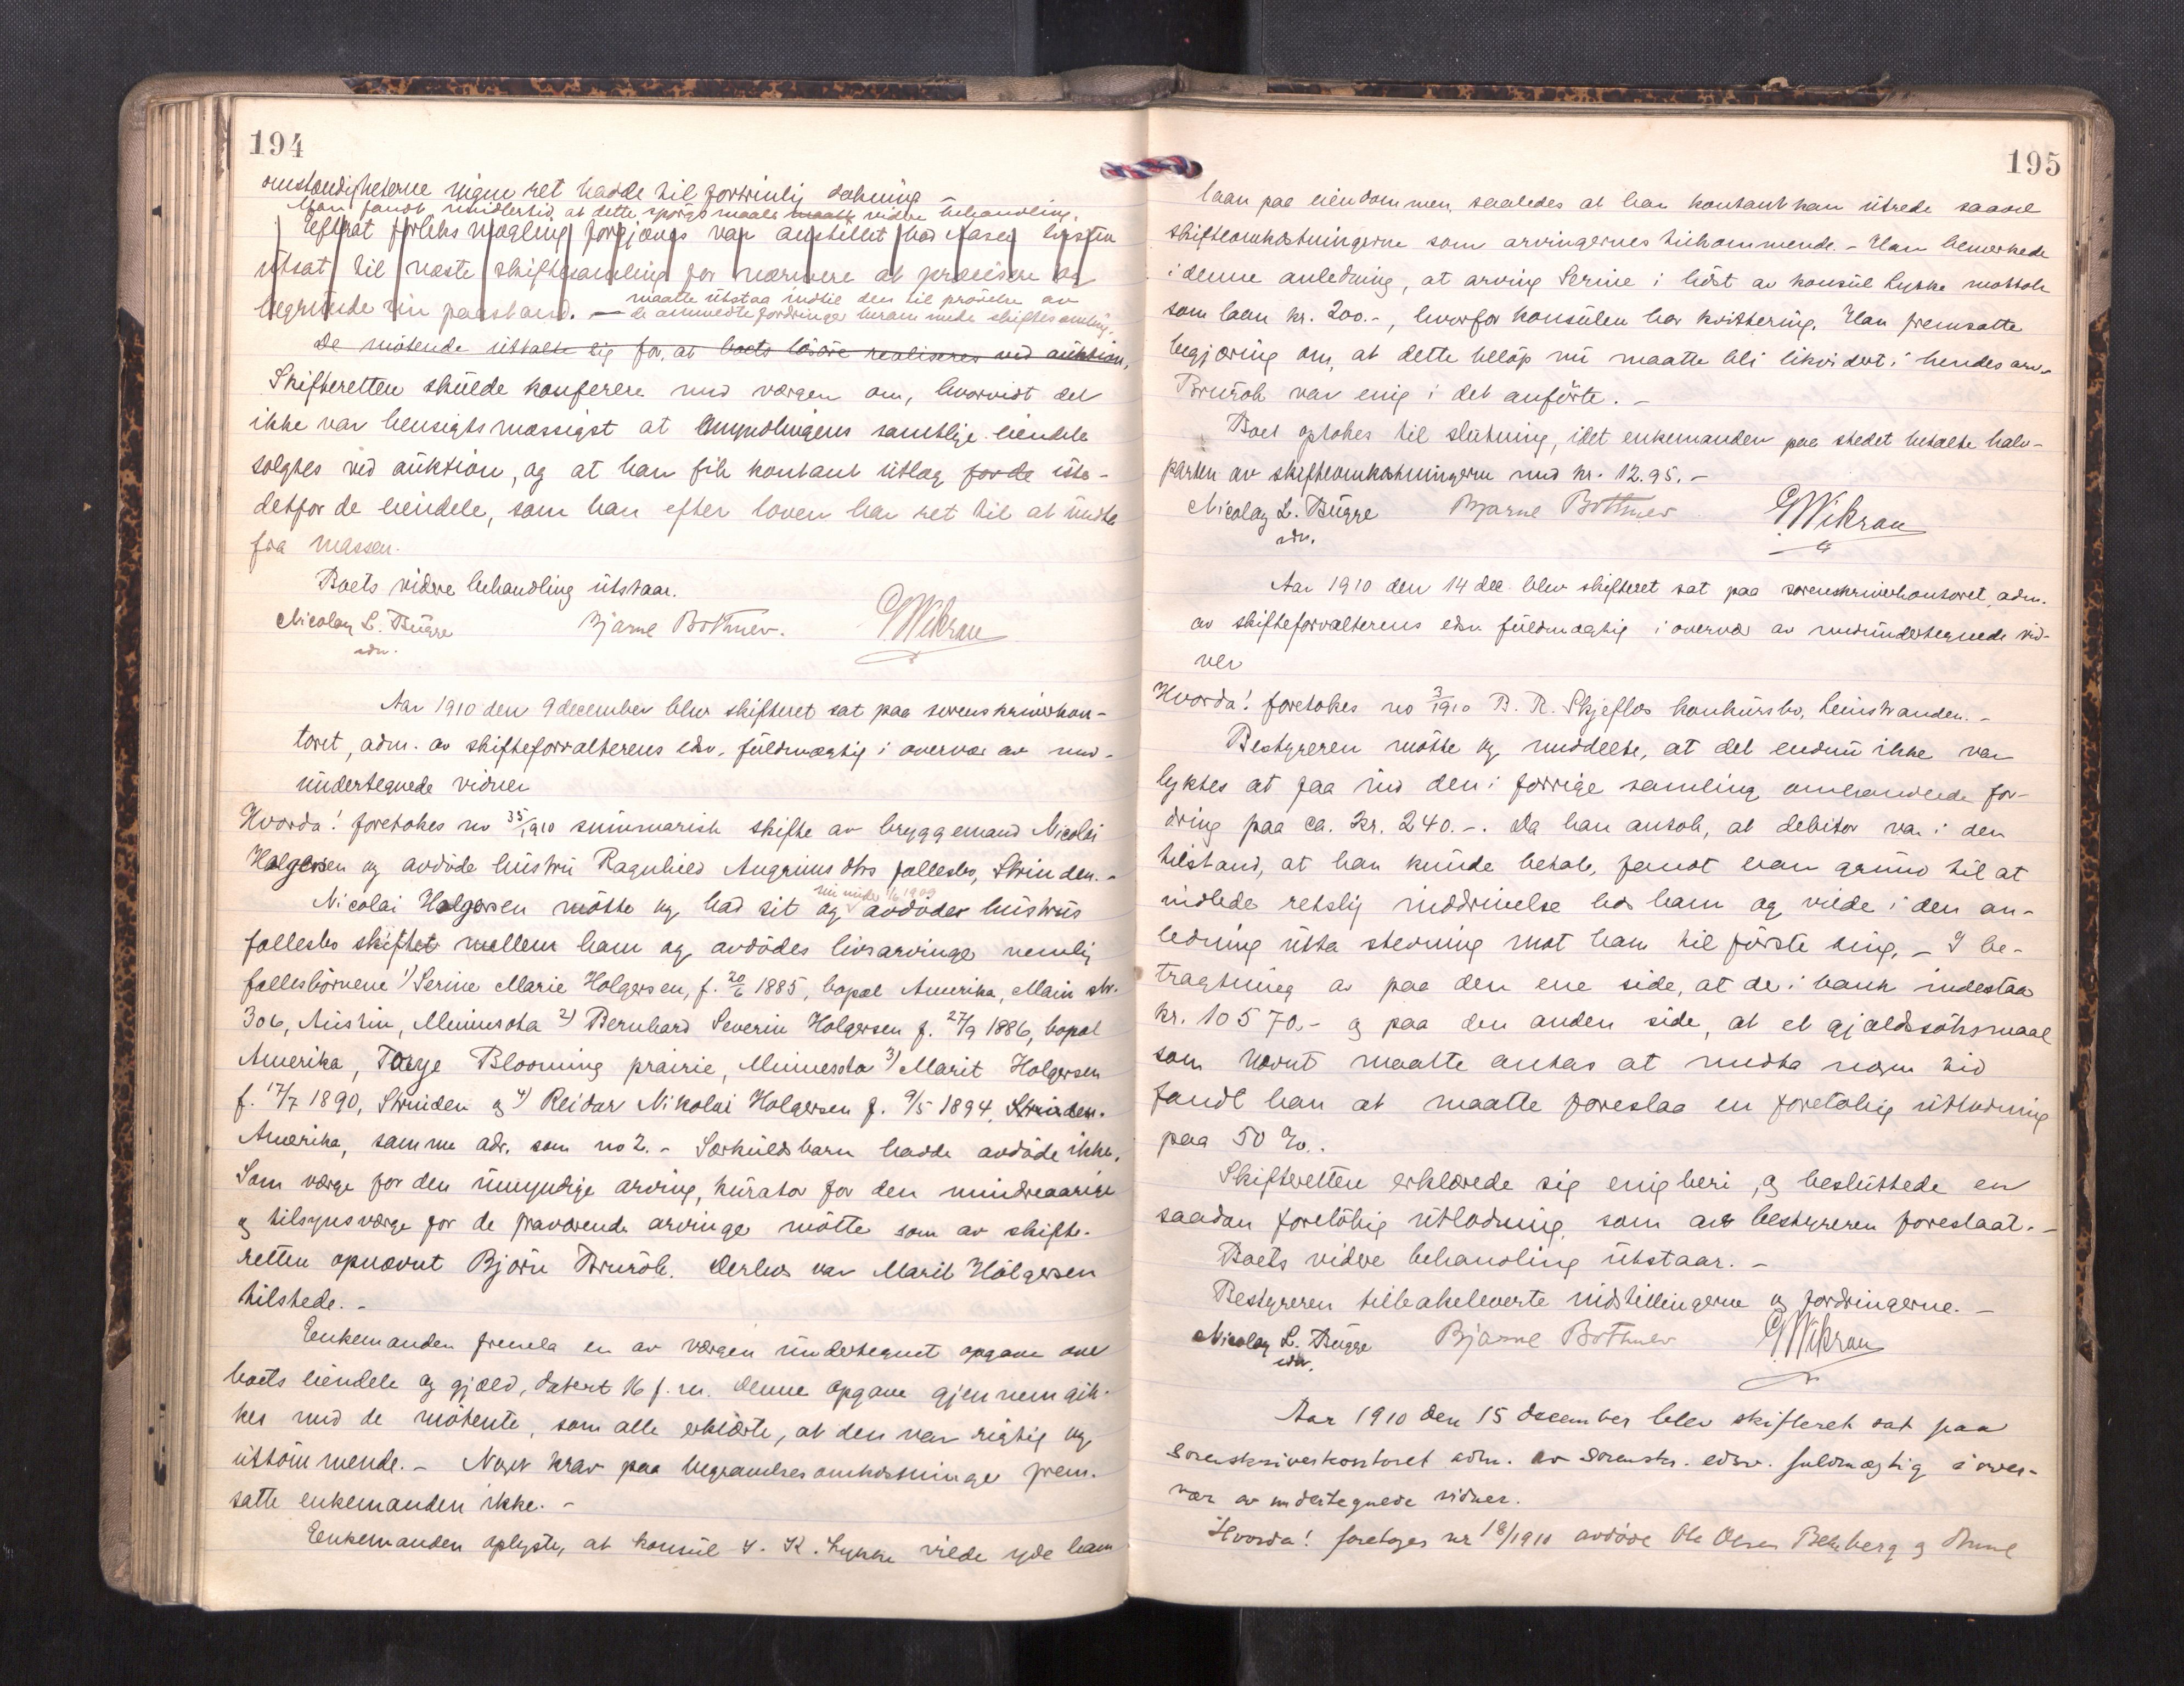 194
omstændigheterne ingen ret hadde til fortrinlig dækning –
Man fandt imidlertid, at dette spørgsmaals maatte videre behandling,
Efterat forliksmægling forgjæves var anstillet
utsat til næste skiftesamling for nærmere at præcisere og
maatte utstaa indtil den til prøvelse av
begrunde sin paastand. — de anmeldte fordringer berammede skiftesamling.
De møtende uttalte sig for, at boets løsøre realiseres ved auktion,
Skifteretten skulde konferere med værgen om, hvorvidt det
ikke var hensigtsmæssigst at myndlingens samtlige eiendele
solgtes ved auktion, og at han fik kontant utlæg for de iste-
detfor de eiendele, som han efter loven har ret til at undta
fra massen.
Boets videre behandling utstaar.
Nicolay L. Bugge Bjarne Bothner. G Wikran
edsv.
Aar 1910 den 9 december blev skifteret sat paa sorenskriverkon-
toret, adm. av skifteforvalterens edsv. fuldmægtig i overvær av med-
undertegnede vidner
Hvorda! foretokes no 35/1910 summarisk skifte av bryggemand Nicolai
Holgersen og avdøde hustru Ragnhild Angrimsdtrs fællesbo, Strinden. –
min mindre 1/6 1909
Nicolai Holgersen møtte og bad sit og avdødes hustrus
fællesbo skiftet mellem ham og avdødes livsarvinger nemlig
fællesbørnene 1) Serine Marie Holgersen, f. 20/6 1885, bopæl Amerika, Main str.
306, Austin, Minnesota 2) Bernhard Severin Holgersen f. 27/9 1886, bopæl
Amerika, Blooming prairie, Minnesota 3) Marit Holgersen
f. 17/7 1890, Strinden og 4) Reidar Nikolai Holgersen f. 9/5 1894, Strinden.
Amerika, samme adr. som no 2. – Særkuldsbarn hadde avdøde ikke.
Som værge for den umyndige arving, kurator for den mindreaarige
og tilsynsværge for de fraværende arvinger møtte som av skifte-
retten opnævnt Bjørn Brurøk. Derhos var Marit Holgersen
tilstede. –
Enkemanden fremla en av værgen undertegnet opgave over
boets eiendele og gjæld, datert 16 f. m. Denne opgave gjennemgik-
kes med de møtende, som alle erklærte, at den var rigtig og
uttømmende. – Noget krav paa begravelsesomkostninger frem-
satte enkemanden ikke. –
Enkemanden oplyste, at konsul I. K. Lykke vilde yde ham
195
laan paa eiendommen, saaledes at han kontant kan utrede saavel
skifteomkostningerne som arvingernes tilkommende. – Han bemerkede
i denne anledning, at arving Serine i tidst av konsul Lykke mottok
som laan kr. 200.-, hvorfor konsulen har kvittering. Han fremsatte
begjæring om, at dette beløp nu maatte bli likvidert i hendes arv.
Brurøk var enig i det anførte. –
Boet optokes til slutning, idet enkemanden paa stedet betalte halv-
parten av skifteomkostningerne med kr. 12.95. –
Nicolay L. Bugge Bjarne Bothner G Wikran
edsv.
Aar 1910 den 14 dec. blev skifteret sat paa sorenskriverkontoret, adm.
av skifteforvalterens edsv. fuldmægtig i overvær av medundertegnede vid-
ner
Hvorda! foretokes no 3/1910 B. R. Skjeflos konkursbo, Leinstranden. –
Bestyreren møtte og meddelte, at det endnu ikke var
lyktes at faa ind den i forrige samling omhandlede for-
dring paa ca. kr. 240.-. Da han antok, at debitor var i den
tilstand, at han kunde betale, fandt han grund til at
indlede retslig inddrivelse hos ham og vilde i den an-
ledning utta stevning mot ham til første ting. – I be-
tragtning av paa den ene side, at de i bank indestaar
kr. 10570.- og paa den anden side, at et gjældssøksmaal
som nævnt maatte antas at medta nogen tid
fandt han at maatte foreslaa en foreløbig utlodning
paa 50 %.
Skifteretten erklærede sig enig heri, og besluttede en
saadan foreløbig utlodning, som av bestyreren foreslaat. –
Boets videre behandling utstaar. –
Bestyreren tilbakeleverte indstillingerne og fordringerne. –
Nicolay L. Bugge Bjarne Bothner G Wikran
edsv.
Aar 1910 den 15 december blev skifteret sat paa
Sorenskriverkontoret adm. av Sorenskr. edsv. fuldmægtig i over-
vær av undertegnede vidner.
Hvorda! foretoges nr 18/1910 avdøde Ole Olsen Bekberg og